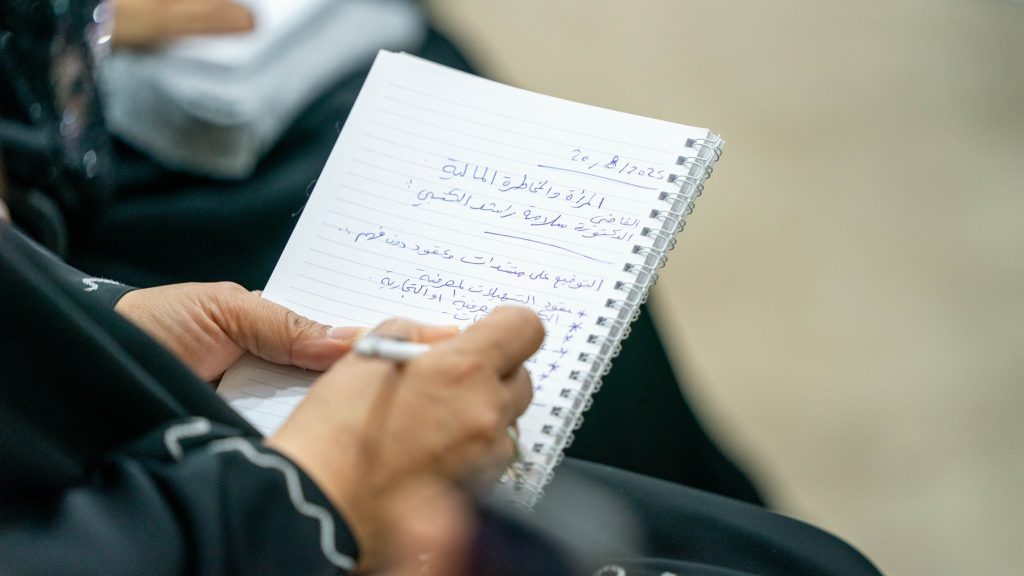 20/8/2025
المرأة والمخاطرة المالية
القاضي
الدكتورة سلامة راشد الكتبي :
التوقيع على مستندات وعقود دون فهم ..
* عقود التسهيلات المصرفية
* المصرفية او التجارية
*
*
*
*